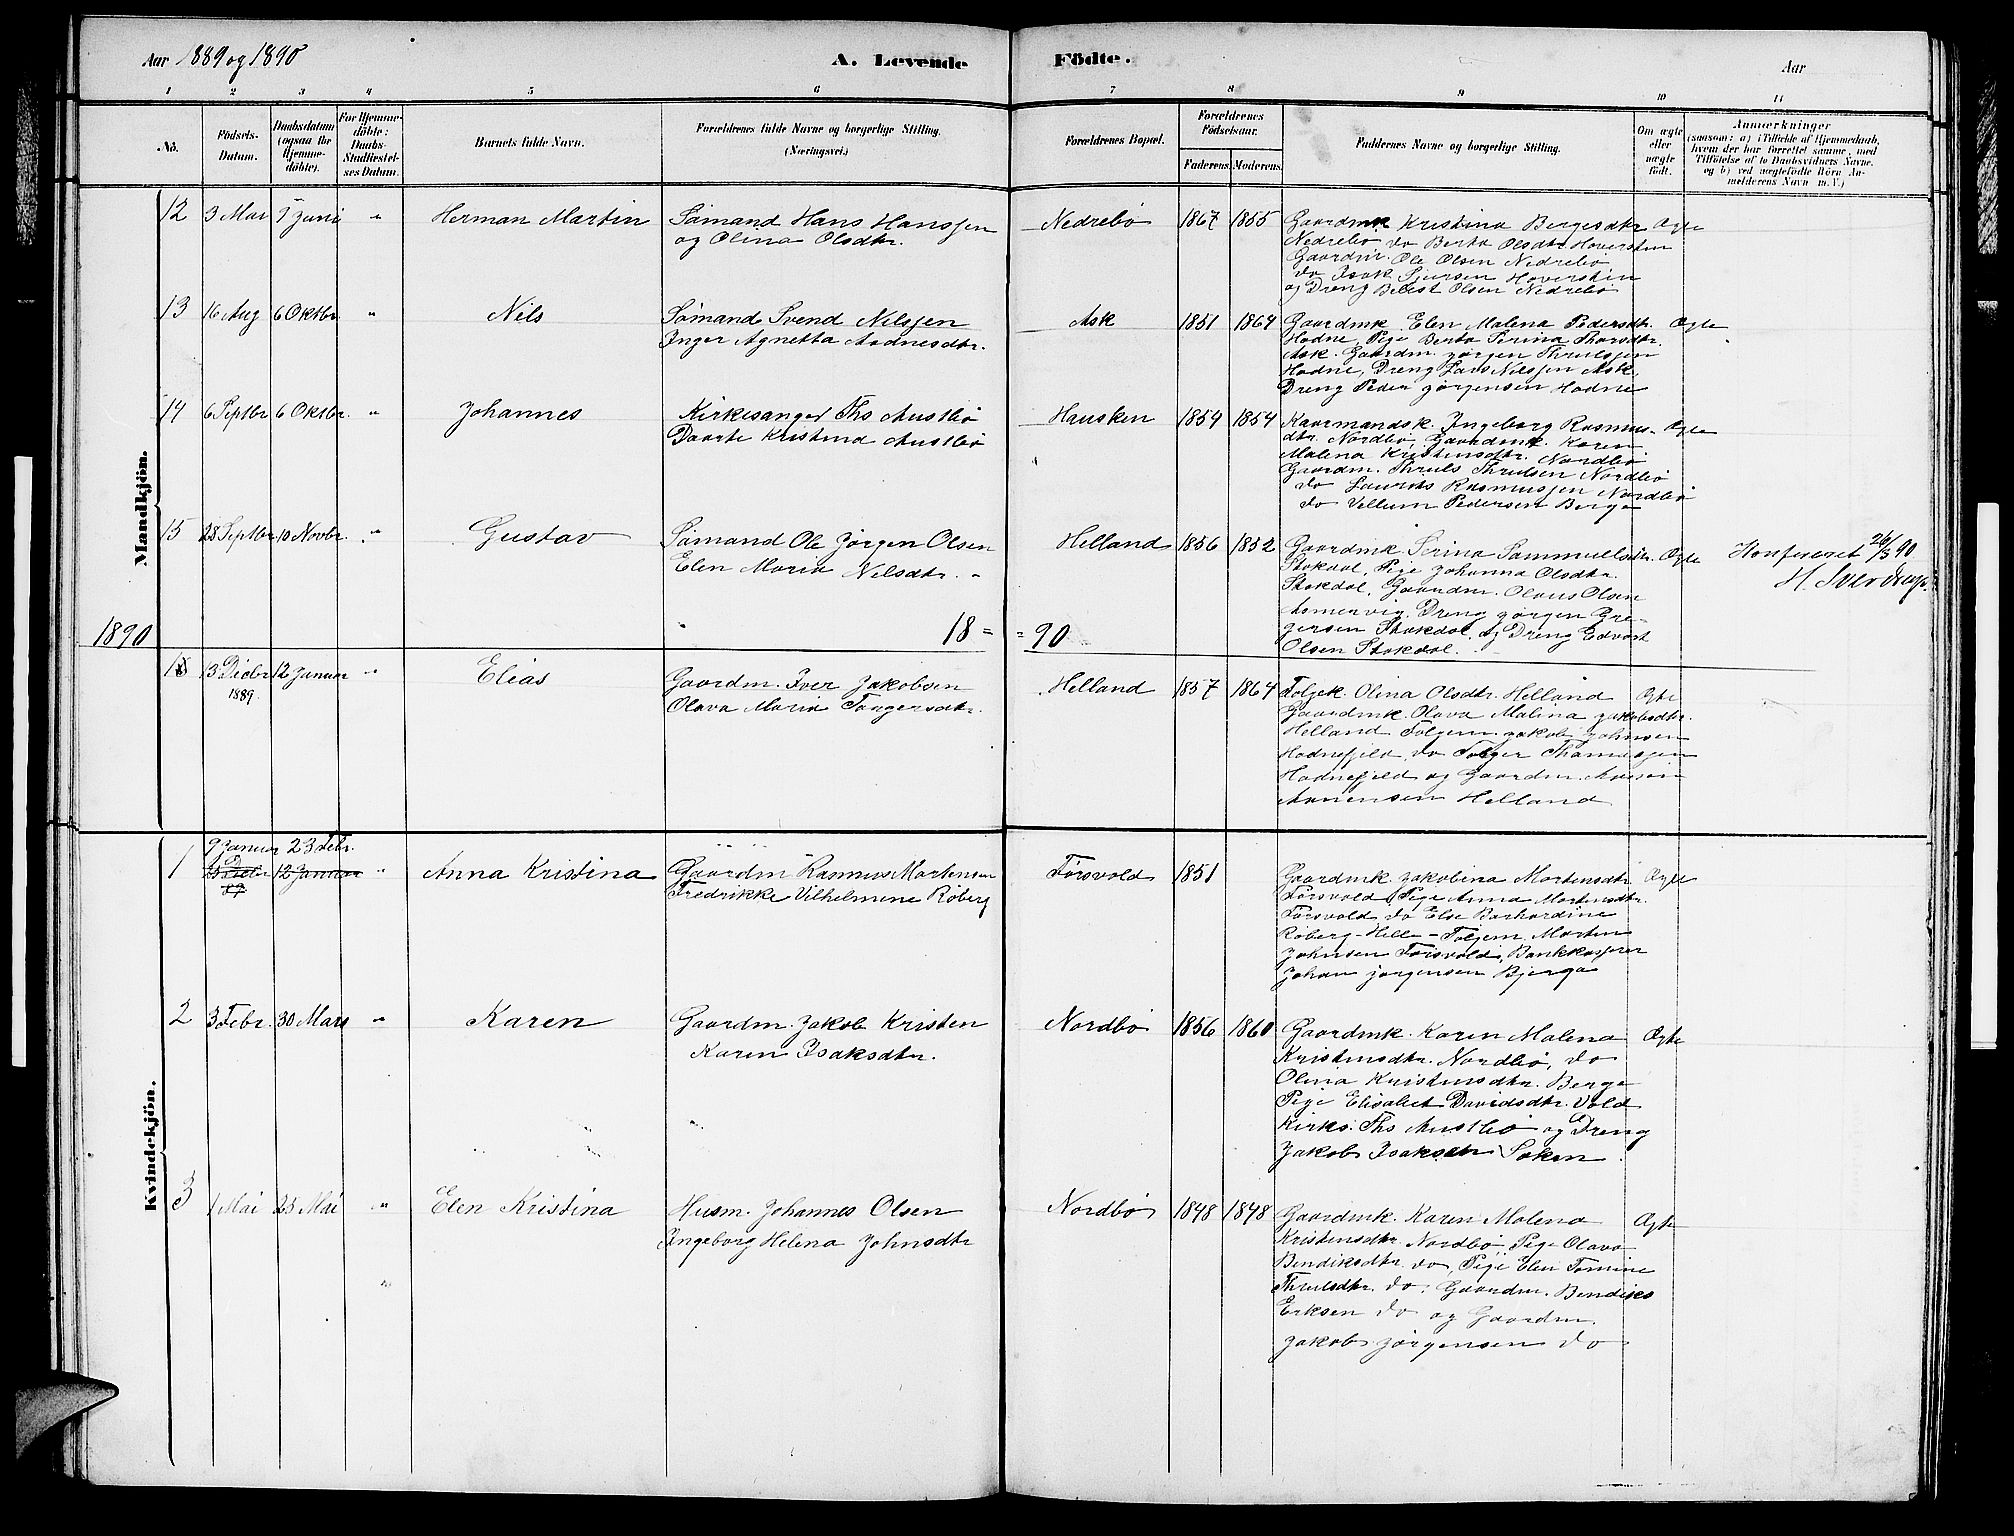 Aar 1889 og 1890
A. Levende
Födte.
Aar
1 2 3 4 5 6 7 8 9 10 11
No.
Födsels-
Datum.
Daabsdatum
(ogsaa for
Hjemme-
döbte).
For Hjemme-
döbte:
Daabs-
Stadfæstel-
ses Datum.
Barnets fulde Navn.
Forældrenes fulde Navne og borgerlige Stilling.
(Næringsvei.)
Forældrenes Bopæl.
Forældrenes
Födselsaar.
Faderens. Moderens.
Faddernes Navne og borgerlige Stilling.
Om ægte
eller
uægte
født.
Anmærkninger
(saasom: a) i Tilfælde af Hjemmedaab,
hvem der har forrettet samme, med
Tilföielse af to Daabsvidners Navne.
og b) ved uægtefödte Börn An-
melderens Navn m. V.)
Mandkjön.
12 3 Mai 5 Juni " Herman Martin
Sömand Hans Hanssen
og Olina Olsdtr.
Nedrebö 1867 1855
Gaardmk Kristina Bergesdtr
Nedrebö do Berta Olsdtr Hoversten
Gaardm. Ole Olsen Nedrebö
do Isak Sjursen Hoversten
og Dreng Olsen Nedrebö
Ægte
13 16 Aug 6 Oktbr. " Nils
Sömand Svend Nilssen
Inger Agnetta Aadnesdtr.
Ask 1851 1864
Gaardmk Elen Malena Pedersdtr.
Hodne, Pige Berta Serina Thorsdtr.
Ask. Gaardm. Jörgen Thrulssen
Hodne, Dreng Lars Nilssen Ask,
Dreng Peder Jörgensen Hodne
Ægte
14 6 Septbr 6 Oktbr. " Johannes
Kirkesanger Ths Austbö
Daarte Kristina Austbö
Hausken 1854 1854
Kaarmandsk. Ingeborg Rasmus-
dtr. Nordbö, Gaardmk. Karen
Malena Kristensdtr. Nordbö
Gaardm. Thruls Thrulsen Nordbö
do Laurits Rasmussen Nordbö
do Vellum Pedersen Berge
Ægte
15 28 Septbr 10 Novbr. " Gustav
Sömand Ole Jörgen Olsen
Elen Maria Nilsdtr.
Helland 1856 1852
Gaardmk. Serina Sammuelsdtr.
Stokdal, Pige Johanna Olsdtr.
Stokdal, Gaardm. Olaus Olsen
Asmervig. Dreng Jörgen Gre-
gersen Stokdal, og Dreng Edvart
Olsen Stokdal.
Ægte
Konfereret 26/5 90
H. Sverdrup.
1890
18 = = 90
1 13 Decbr 12 Januar " Elias
1889.
Gaardm. Iver Jakobsen
Olava Maria Tangersdtr.
Helland 1857 1864
Folgek. Olina Olsdtr. Helland
Gaardmk. Olava Malina Jakobsdtr.
Helland Folgem. Jakob Johnsen
Hodnefjeld do Folger Thomassen
Hodnefjeld og Gaardm.
Helland
Ægte
Kvindekjön.
9 Januar 23 Febr.
1 25 Decbr 12 Januar " Anna Kristina
89
Gaardm Rasmus Mortensen
Fredrikke Vilhelmine Röberg
Försvold 1851
Gaardmk. Jakobina Mortensdtr.
Försvold, Pige Anna Mortensdtr.
Försvold do Else Barhardine
Röberg-Helle-Folgem Morten
Johnsen Försvold, Bankkasserer
Johan Jörgensen Bjerga
Ægte
2 3 Febr. 30 Mars " Karen
Gaardm. Jakob Kristen
Karen Isaksdtr.
Nordbö 1856 1860
Gaardmk. Karen Malena
Kristensdtr. Nordbö, do
Olina Kristensdtr. Berge
Pige Elisabet Davidsdtr. Vold
Kirks. Ths Austbö og Dreng
Jakob Isaksen Soken
Ægte
3 1 Mai 25 Mai " Elen Kristina
Husm. Johannes Olsen
Ingeborg Helena Johnsdtr
Nordbö 1848 1848
Gaardmk. Karen Malena
Kristensdtr. Nordbö, Pige Olava
Bendiksdtr. do, Pige Elen Tomine
Thrulsdtr. do. Gaardm. Bendiks
Erksen do og Gaardm.
Jakob Jörgensen do
Ægte